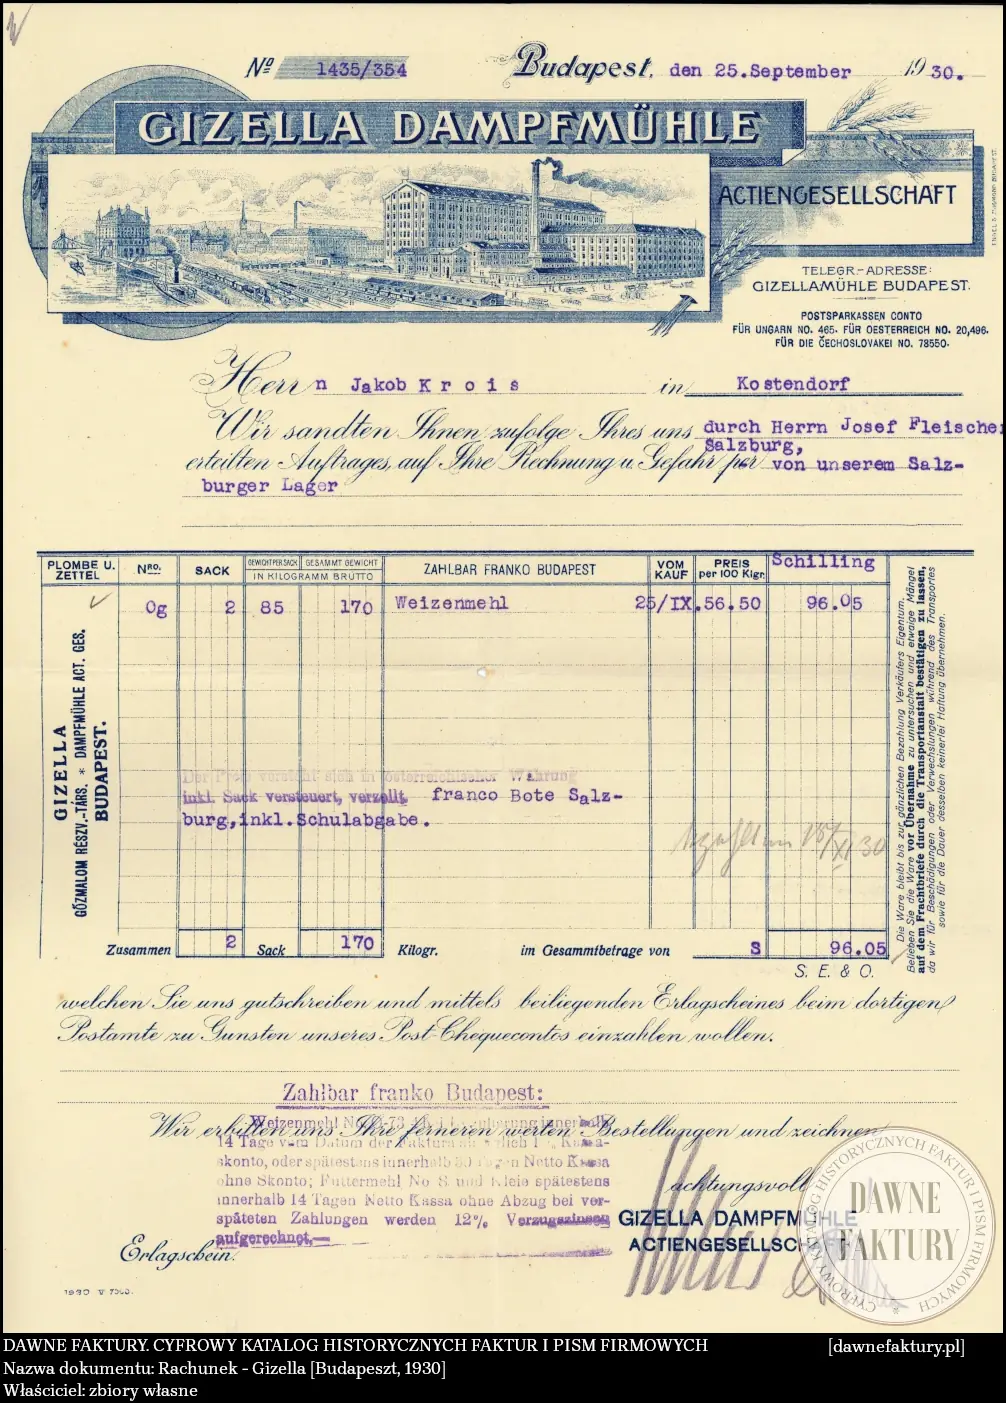 Nº 1435/354
Budapest, den 25.September 1930.
GIZELLA DAMPFMÜHLE
ACTIENGESELLSCHAFT
TELEGR.-ADRESSE:
GIZELLAMÜHLE BUDAPEST.
POSTSPARKASSEN CONTO
FÜR UNGARN NO. 465. FÜR OESTERREICH NO. 20,496.
FÜR DIE ČECHOSLOVAKEI NO. 78550.
Herrn Jakob Krois in Kostendorf
Wir sandten Ihnen zufolge Ihres uns durch Herrn Josef Fleische
Salzburg,
erteilten Auftrages, auf Ihre Rechnung u. Gefahr per von unserem Salz-
burger Lager
PLOMBE U. ZETTEL NRO. SACK GEWICHT PER SACK GESAMMT GEWICHT IN KILOGRAMM BRUTTO ZAHLBAR FRANKO BUDAPEST VOM KAUF PREIS per 100 Klgr. Schilling
0g 2 85 170 Weizenmehl 25/IX. 56.50 96.05
GIZELLA
GŐZMALOM RÉSZV.-TÁRS. * DAMPFMÜHLE ACT. GES.
BUDAPEST.
Der Preis versteht sich in österreichischer Währung
inkl. Sack versteuert, verzollt, franco Bote Salz-
burg,inkl.Schulabgabe.
Die Ware bleibt bis zur gänzlichen Bezahlung Verkäufers Eigentum.
Belieben Sie die Ware vor Übernahme zu untersuchen und etwaige Mängel
auf dem Frachtbriefe durch die Transportanstalt bestätigen zu lassen,
da wir für Beschädigungen oder Verwechslungen während des Transportes
sowie für die Dauer desselben keinerlei Haftung übernehmen.
Zusammen 2 Sack 170 Kilogr. im Gesammtbetrage von S 96.05
S. E. & O.
welchen Sie uns gutschreiben und mittels beiliegenden Erlagscheines beim dortigen
Postamte zu Gunsten unseres Post-Chequecontos einzahlen wollen.
Zahlbar franko Budapest:
Wir erbitten uns Ihre ferneren werten Bestellungen und zeichnen
Weizenmehl innerhalb
14 Tage vom Datum der Faktura
skonto, oder spätestens innerhalb 30 Tagen Netto Kassa
ohne Skonto; Futtermehl No 8 und Kleie spätestens
innerhalb 14 Tagen Netto Kassa ohne Abzug bei ver-
späteten Zahlungen werden 12% Verzugszinsen
aufgerechnet.
achtungsvoll
GIZELLA DAMPFMÜHLE
ACTIENGESELLSCHA
Erlagschein.
1930 V
DAWNE FAKTURY
CYFROWY KATALOG HISTORYCZNYCH FAKTUR I PISM FIRMOWYCH
DAWNE FAKTURY. CYFROWY KATALOG HISTORYCZNYCH FAKTUR I PISM FIRMOWYCH [dawnefaktury.pl]
Nazwa dokumentu: Rachunek - Gizella [Budapeszt, 1930]
Właściciel: zbiory własne